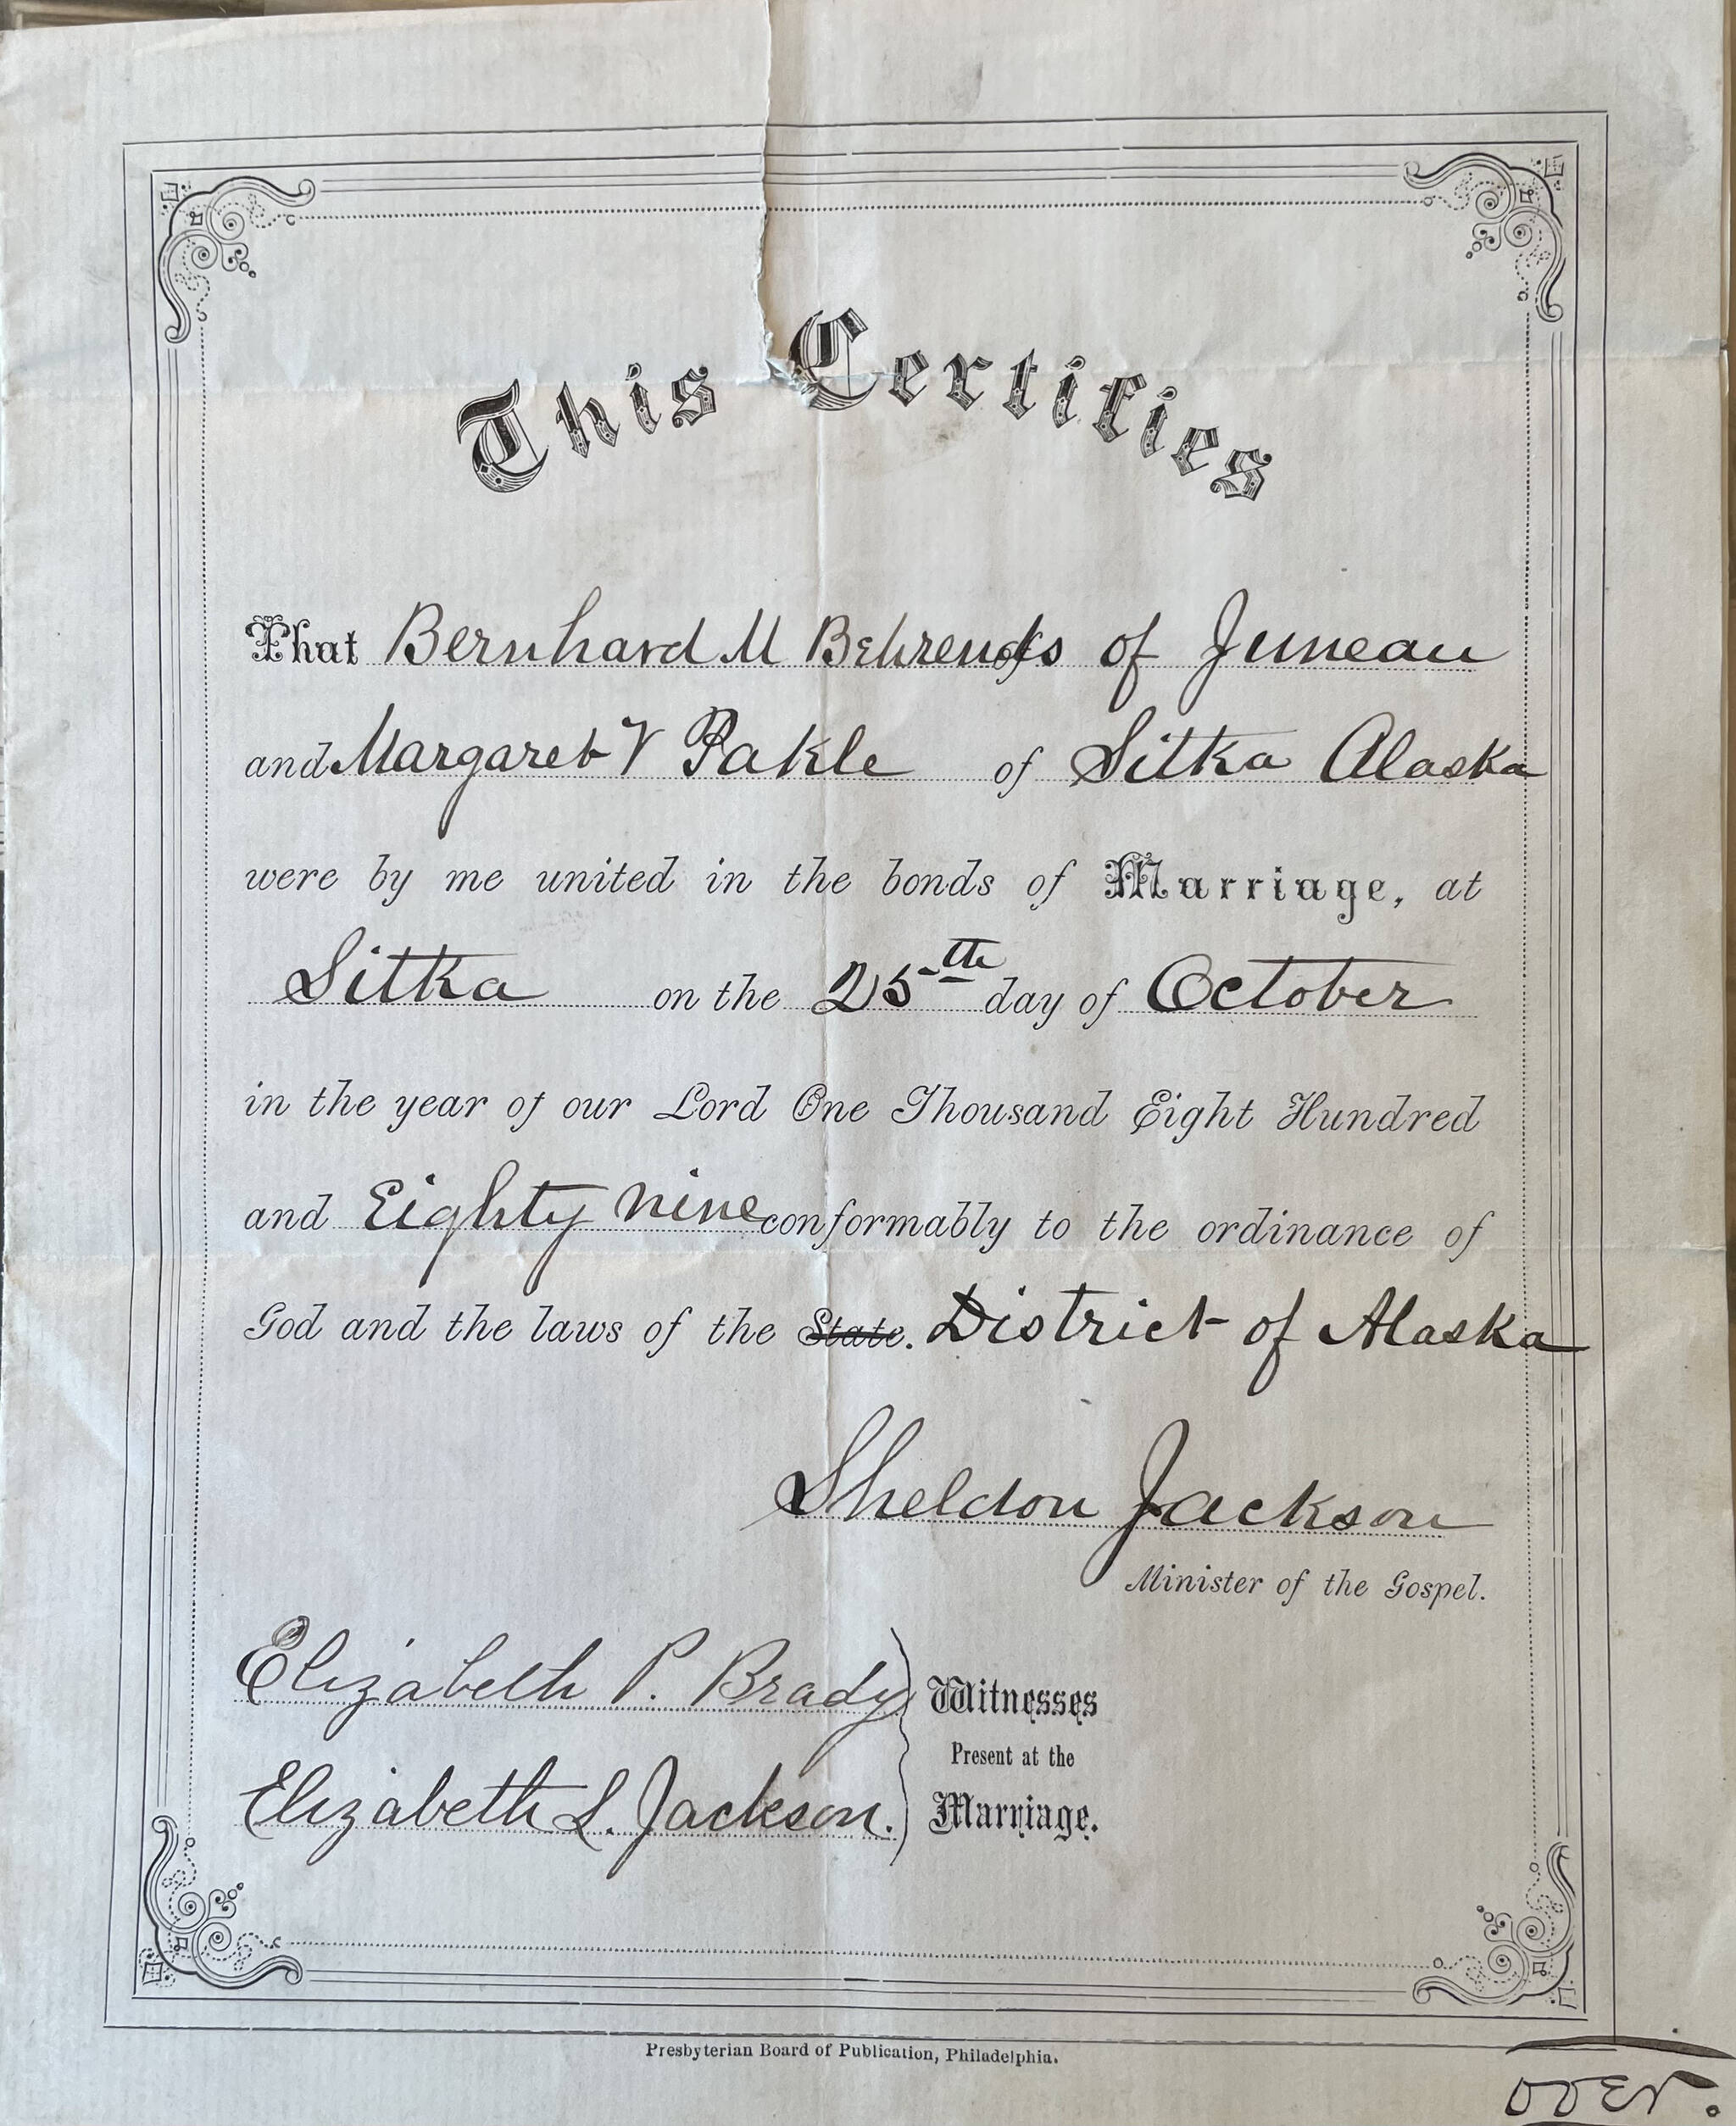 This Certifies
That Bernhard M Behrends of Juneau
and Margaret V Pakle of Sitka Alaska
were by me united in the bonds of Marriage, at
Sitka on the 25th day of October
in the year of our Lord One Thousand Eight Hundred
and Eighty nine conformably to the ordinance of
God and the laws of the State. District of Alaska
Sheldon Jackson
Minister of the Gospel.
Elizabeth P. Brady
Witnesses
Present at the
Elizabeth L. Jackson.
Marriage.
Presbyterian Board of Publication, Philadelphia.
over.